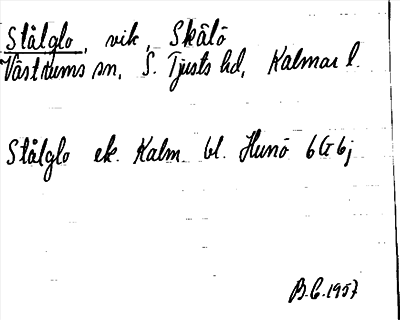 Stålglo, vik, Skälö
Västrums sn, S. Tjusts hd, Kalmar l.
Stålglo ek. Kalm. bl. Hunö 6G6j
B.C. 1957